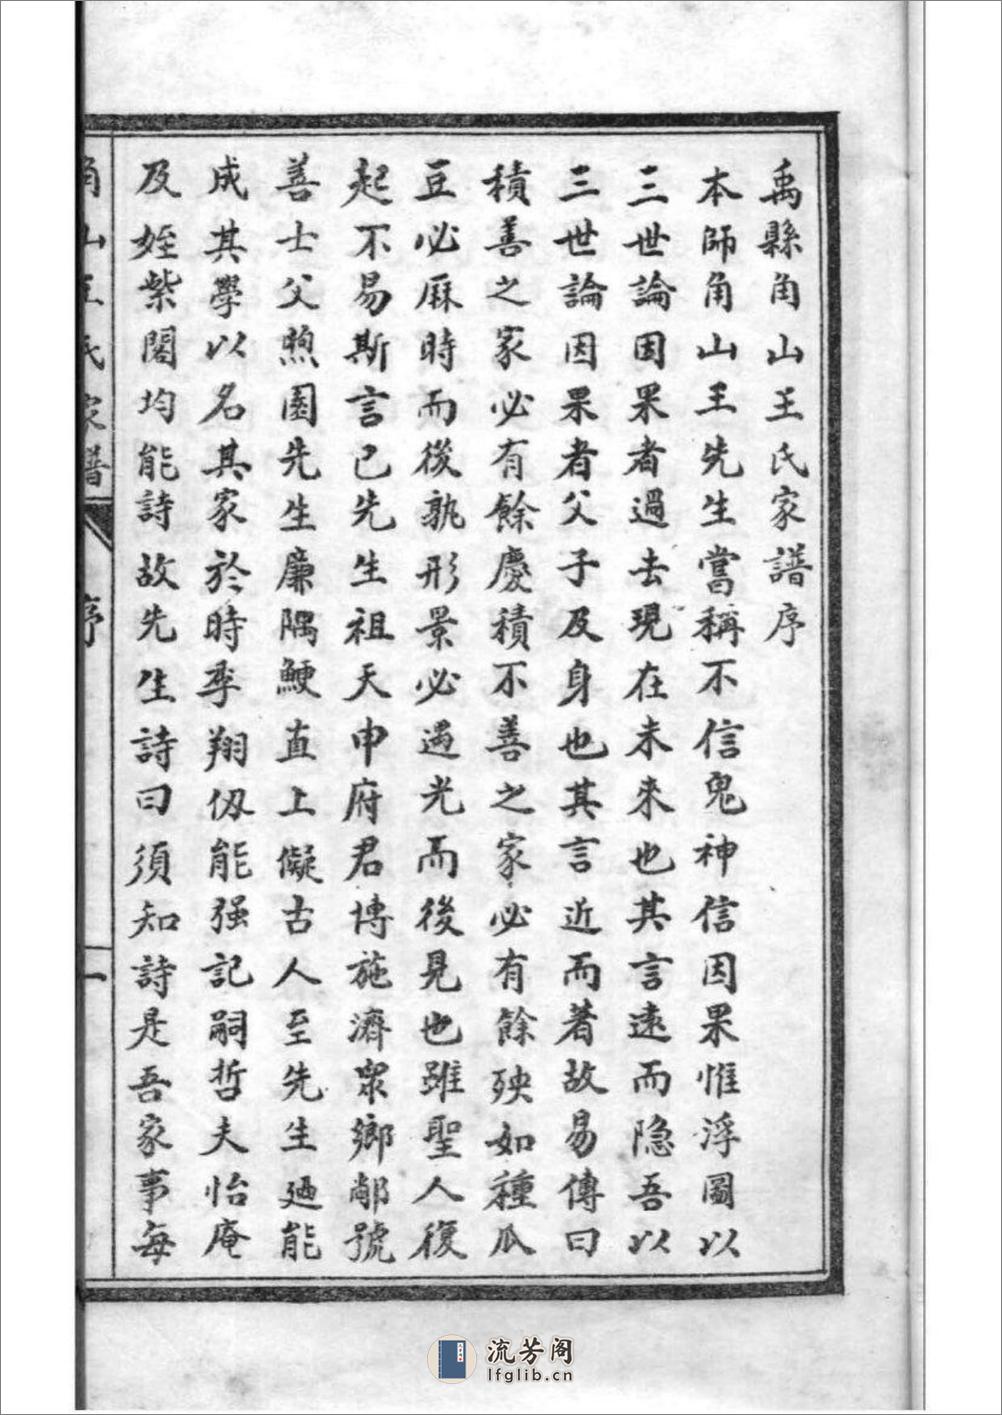 禹縣角山王氏家譜序
本師角山王先生嘗稱不信鬼神信因果惟浮圖以
三世論因果者過去現在未來也其言遠而隐吾以
三世論因果者父子及身也其言近而著故易傳曰
積善之家必有餘慶積不善之家必有餘殃如種瓜
豆必厤時而後孰形景必遇光而後見也雖聖人復
起不易斯言已先生祖天申府君博施濟眾鄉鄰號
善士父煦園先生廉隅鯁直上儗古人至先生廼能
成其學以名其家於時季翔仭能强記嗣哲夫怡庵
及姪紫閣均能詩故先生詩曰須知詩是吾家事每
角山王氏家譜 序 一
流芳阁
lfglib.cn